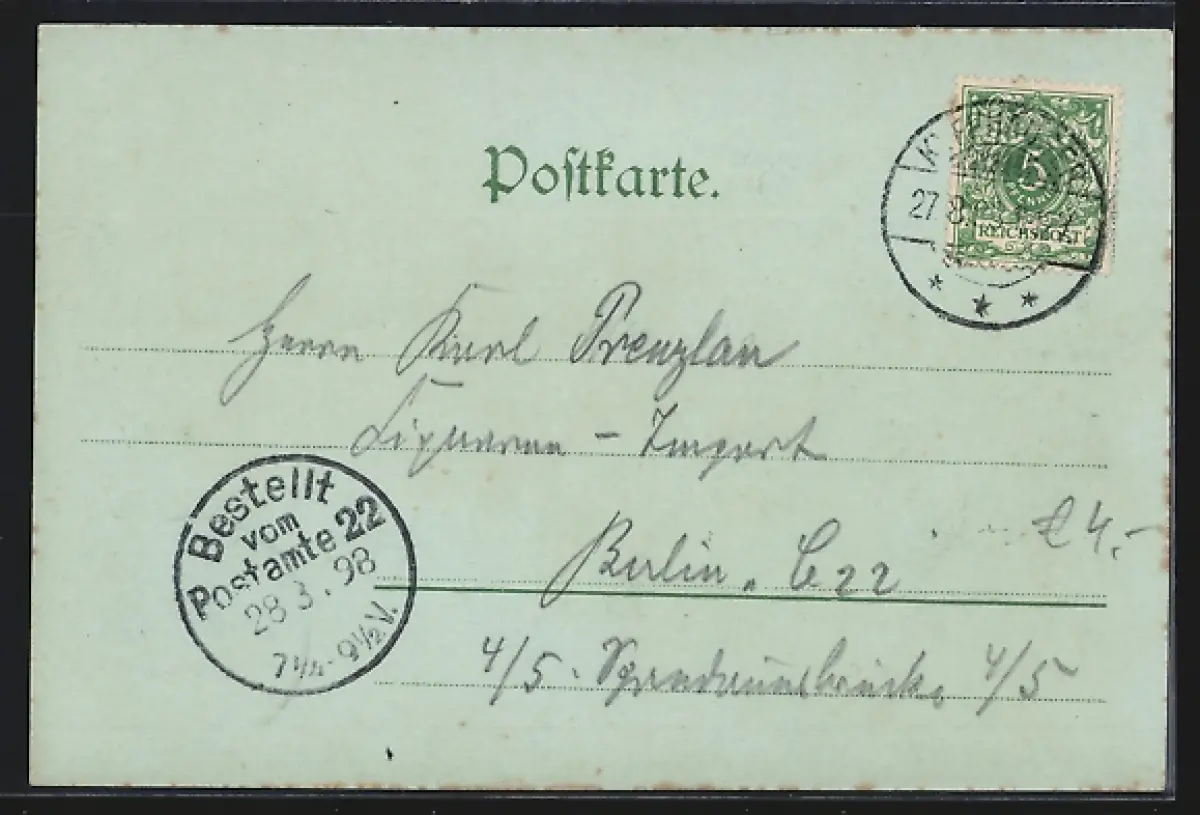 Postkarte.
5
REICHSPOST
27
Herrn Karl Prenzlau
Import
Berlin, C 22
4/5. Spandauerbrück. 4/5
£4.-
Bestellt
vom
Postamte 22
28 3. 98
7 1/4 - 9 1/2 V.